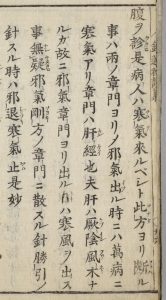 腹ヲ診是病人ハ寒氣來ルベシト此方ヨリ
事ハ邪氣章門ヨリ出ル時ニハ萬病ニ
寒氣アリ章門ハ肝經也夫肝ハ厥陰風木ナ
ルカ故ニ邪氣章門ヨリ出ルハ寒風ヲ出ス
事無疑邪氣剛方ハ章門ニ散スル針勝引ノ
針スル時ハ邪退寒氣止是妙